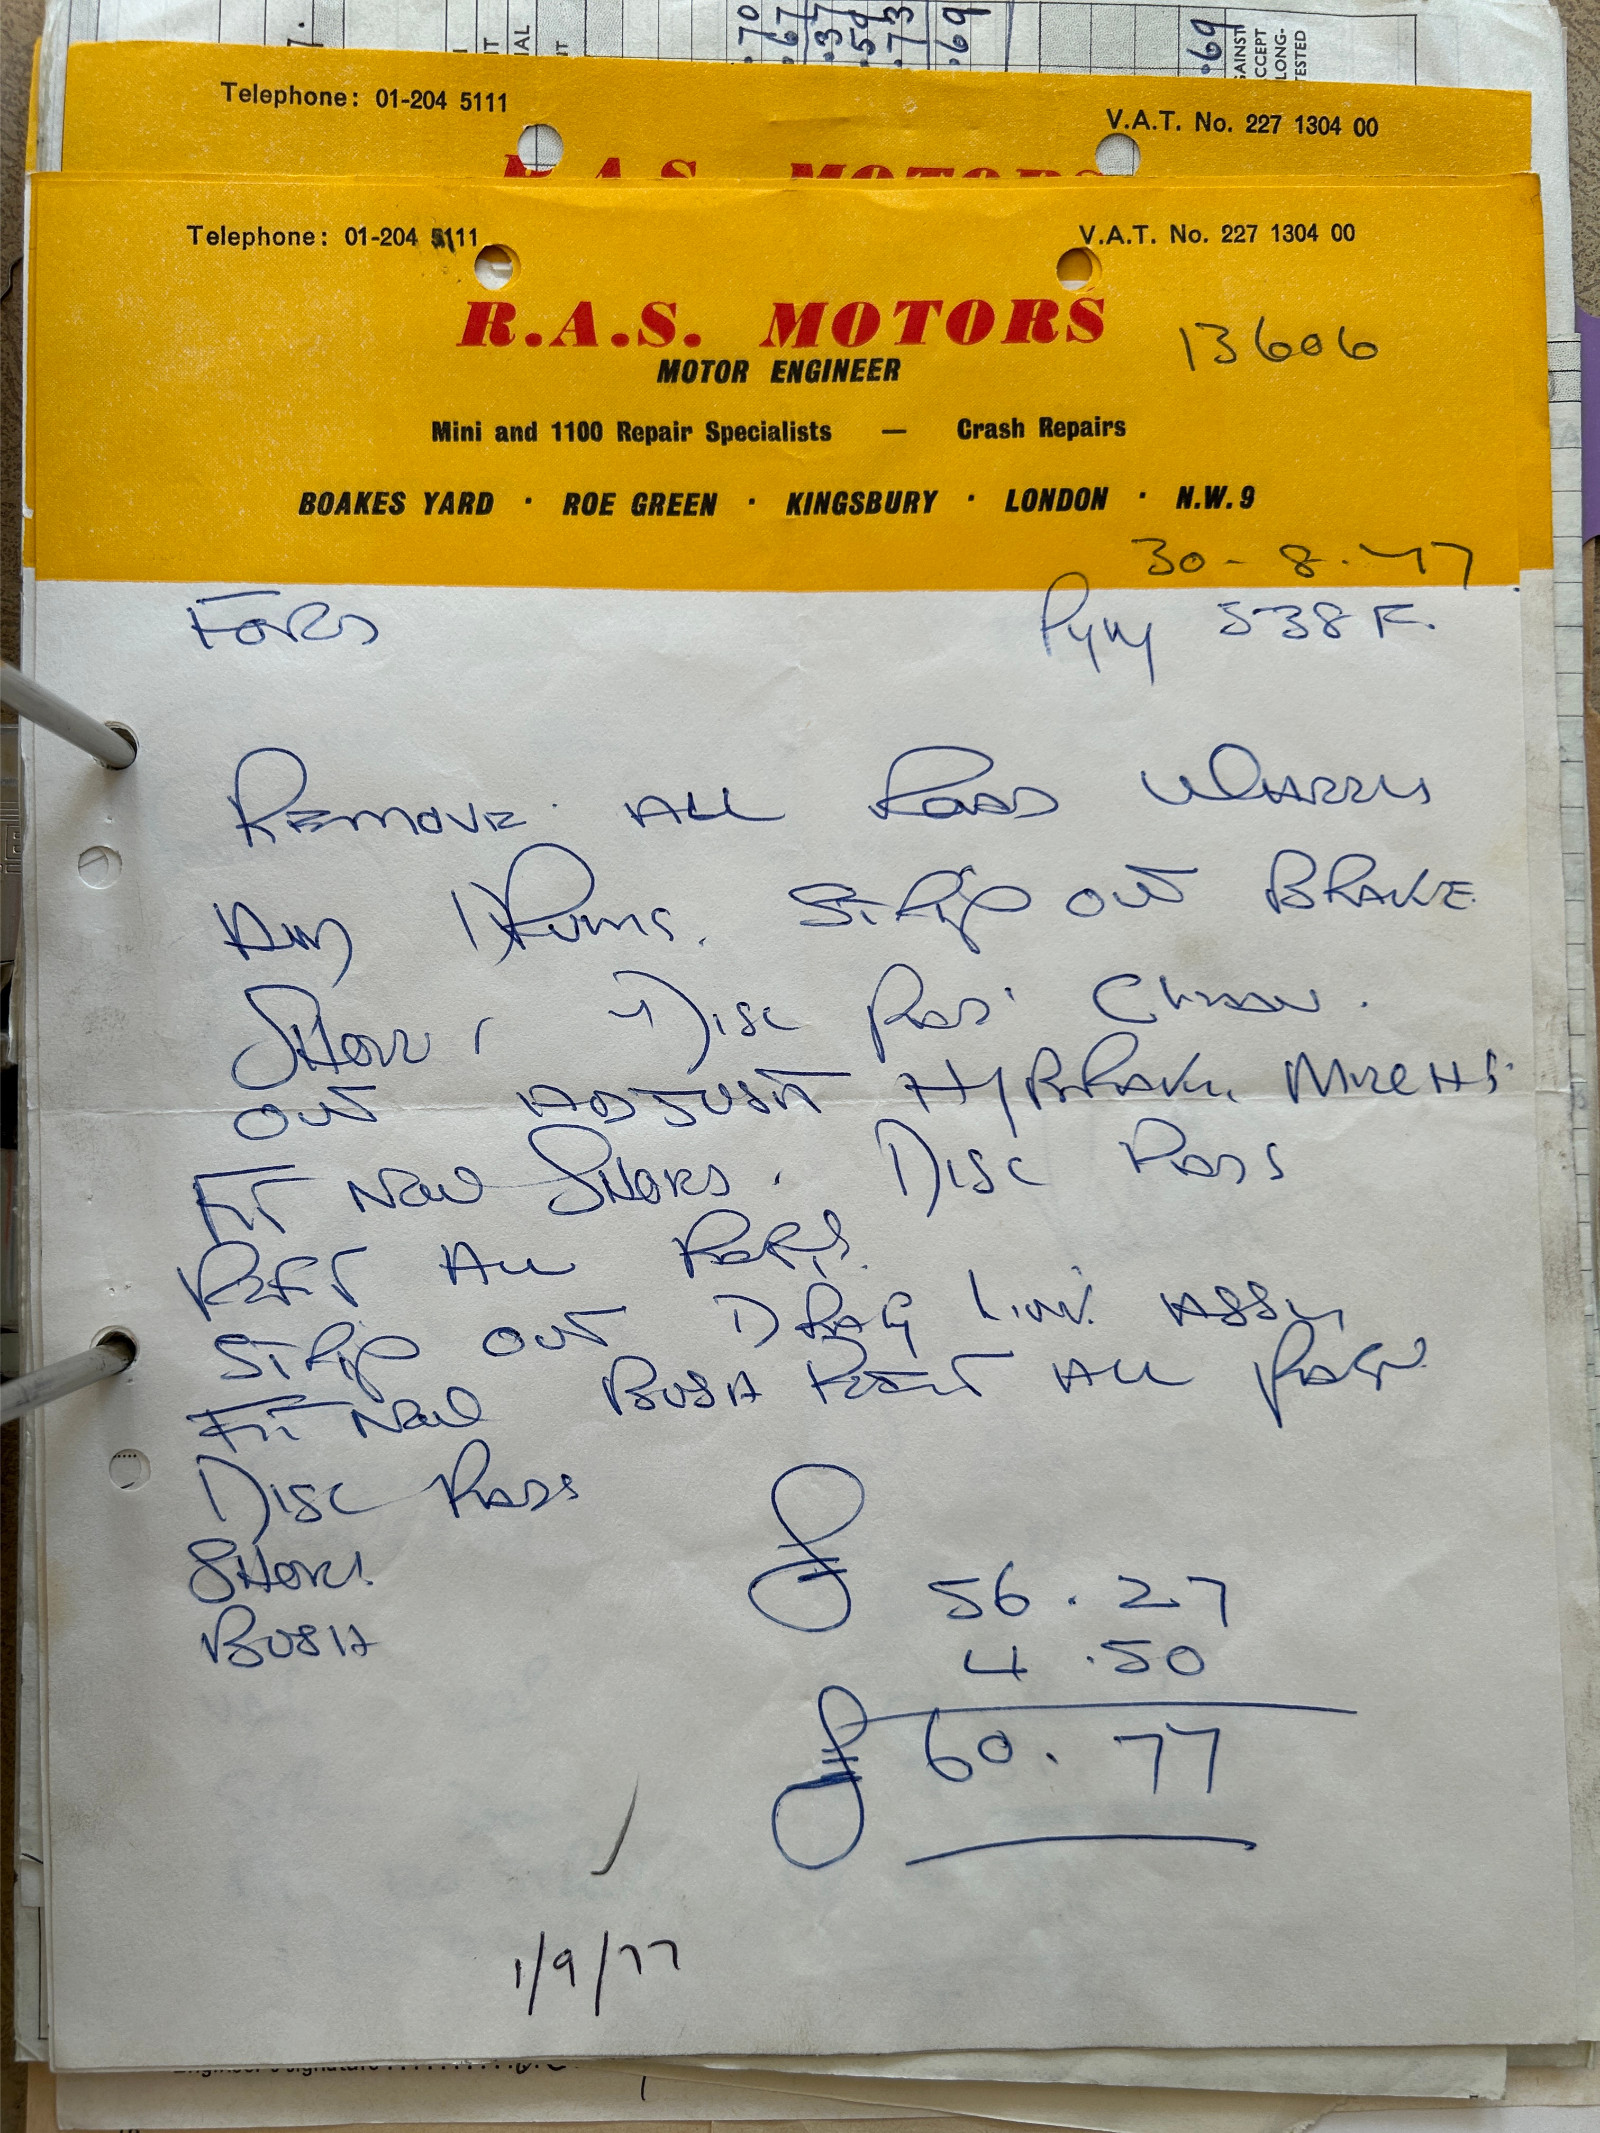 .70
.67
.37
.59
.73
.69
.69
AINST
CCEPT
LONG-
TESTED
Telephone: 01-204 5111
V.A.T. No. 227 1304 00
R.A.S. MOTORS
Telephone: 01-204 5111
V.A.T. No. 227 1304 00
R.A.S. MOTORS
13606
MOTOR ENGINEER
Mini and 1100 Repair Specialists — Crash Repairs
BOAKES YARD · ROE GREEN · KINGSBURY · LONDON · N.W.9
30-8-77
FORD
PYW 538F.
REMOVE ALL ROAD WHEELS
AND DRUMS. STRIP OUT BRAKE
SHOES, DISC PADS CLEAN.
OUT ADJUST H/BRAKE
FIT NEW SHOES. DISC PADS
REFIT ALL PARTS.
STRIP OUT DRAG LINK ASSY
FIT NEW BUSH REFIT ALL PARTS
DISC PADS
SHOES
BUSH
£ 56.27
4.50
£ 60.77
1/9/77
Engineer's signature